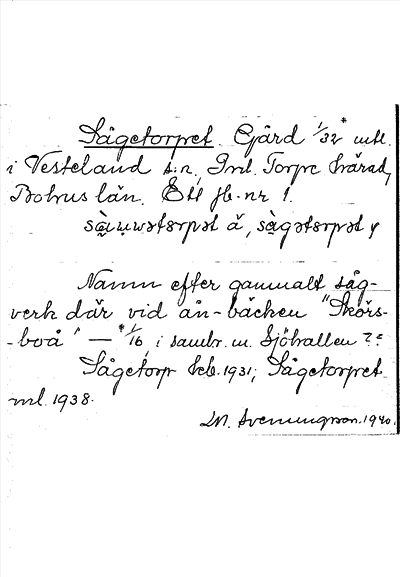 Sågetorpet. Gård 1/32* mtl.
i Vesteland s:n, Inl. Torpe härad,
Bohus län. Ett jb.-nr 1.
Namn efter gammalt såg-
verk där vid ån-bäcken "Skörs-
-boå" — *1/16, i sambr. m. Sjöhallen 2:2
Sågetorp kcb. 1931; Sågetorpet
ml. 1938.
M. Sveningsson. 1940.